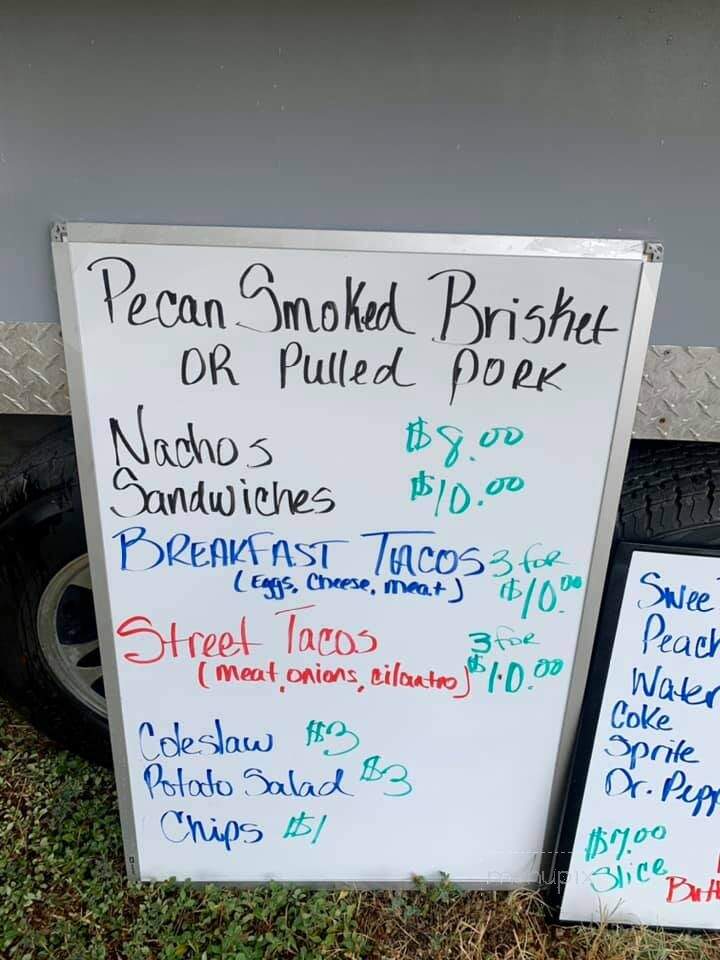 Pecan Smoked Brisket
OR Pulled PORK
Nachos $8.00
Sandwiches $10.00
BREAKFAST TACOS 3 for
(Eggs, Cheese, meat) $10.00
Street Tacos 3 for
(meat, onions, cilantro) $10.00
Coleslaw $3
Potato Salad $3
Chips $1
Swee
Peach
Water
Coke
Sprite
Dr. Pepp
$7.00
Slice